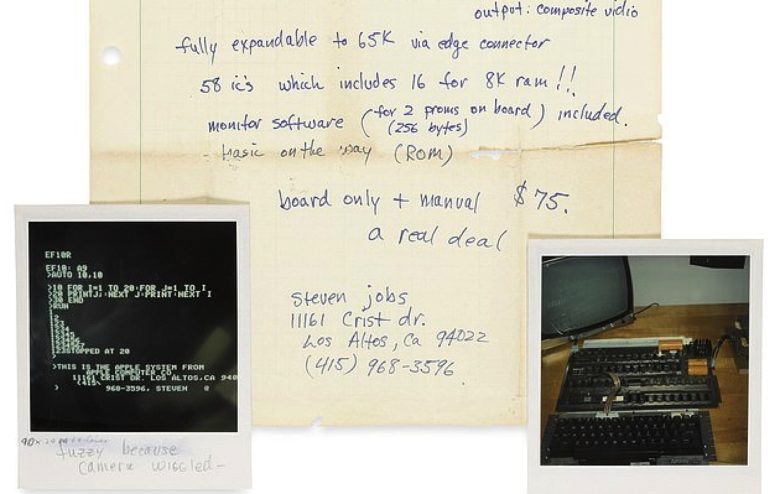 output: composite vidio
fully expandable to 65K via edge connector
58 ic's which includes 16 for 8K ram!!
monitor software (for 2 proms on board) included.
(256 bytes)
- basic on the way (ROM)
board only + manual $75.
a real deal
steven jobs
11161 Crist dr.
Los Altos, Ca 94022
(415) 968-3596
EF10R
EF10: A9
>AUTO 10,10
>10 FOR I=1 TO 20:FOR J=1 TO I
>20 PRINTJ;:NEXT J:PRINT:NEXT I
>30 END
>RUN
1
12
123
1234
12345
123456
1234567
123STOPPED AT 20
>THIS IS THE APPLE SYSTEM FROM
APPLE COMPUTER CO
11161 CRIST DR. LOS ALTOS,CA 940
(415)
968-3596, STEVEN @
>
fuzzy because
camera wiggled-